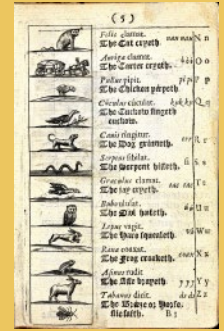 (5)
Felis clamat. nau nau N n
The Cat cryeth.
Auriga clamat. O o
The Carter cryeth.
Pullus pipit. pi pi P p
The Chicken peepeth.
Cuculus cuculat. kuk ku Q q
The Cuckow singeth
cuckow.
Canis ringitur. err R r
The Dog grinneth.
Serpens sibilat. si S s
The Serpent hisseth.
Graculus clamat. tac tac T t
The Jay cryeth.
Bubo ululat. U u
The Owl hooteth.
Lepus vagit. W w
The Hare squeaketh.
Rana coaxat. coax X x
The Frog croaketh.
Asinus rudit. y y y Y y
The Asse brayeth.
Tabanus dicit. ds ds Z z
The Breeze or Horse-
flie saith. B 3